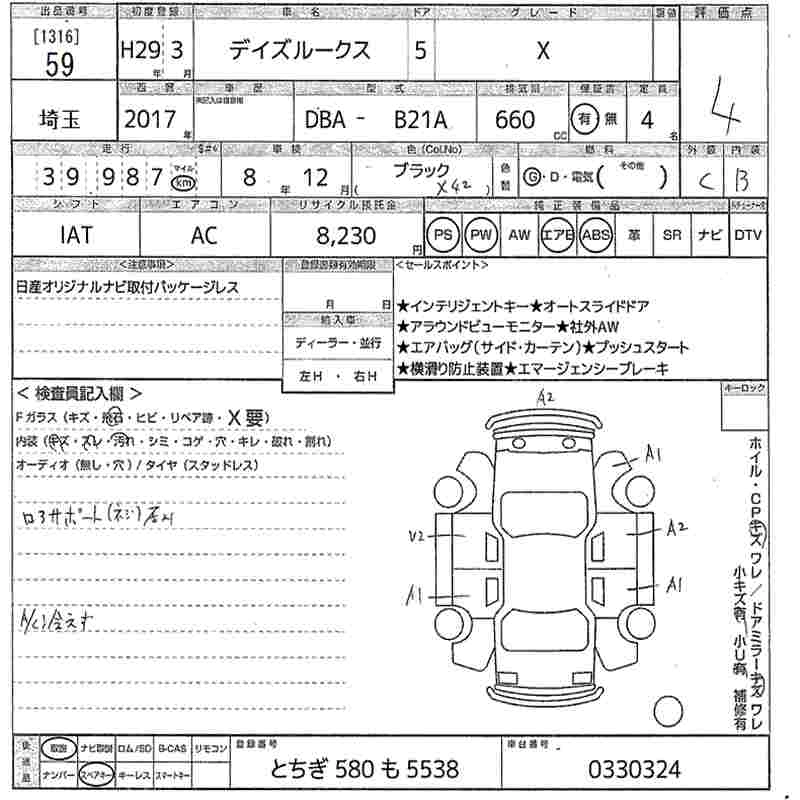 出品番号 初度登録 車名 ドア グレード 評価点
[1316] 59 H29年 3月 デイズルークス 5 X 4
車歴 型式 排気量 保証書 定員
埼玉 2017年 DBA - B21A 660cc 有 無 4名
走行 車検 色(Col.No) 色替 燃料 外装 内装
39,987 マイル km 8年 12月 ブラック (X42) G・D・電気( その他 ) C B
シフト エアコン リサイクル預託金 純正装備品
IAT AC 8,230円 PS PW AW エアB ABS 革 SR ナビ DTV
<注意事項> 登録書類有効期限 <セールスポイント>
日産オリジナルナビ取付パッケージレス
月 日
★インテリジェントキー★オートスライドドア
輸入車
★アラウンドビューモニター★社外AW
ディーラー・並行
★エアバッグ(サイド・カーテン)★プッシュスタート
左H ・ 右H
★横滑り防止装置★エマージェンシーブレーキ
< 検査員記入欄 >
キーロック
Fガラス (キズ・飛石・ヒビ・リペア跡・X要)
内装 (キズ・スレ・汚れ・シミ・コゲ・穴・キレ・破れ・割れ)
オーディオ (無し・穴) / タイヤ (スタッドレス)
A2
A1
U2
A2
A1
A1
A/C冷えず
ホイル・CPキズ ワレ / ドアミラーキズ ワレ
小キズ有 小U有 補修有
後送品 取説 ナビ取説 ロム/SD B-CAS リモコン 登録番号 車台番号
ナンバー スペアキー キーレス スマートキー とちぎ 580 も 5538 0330324